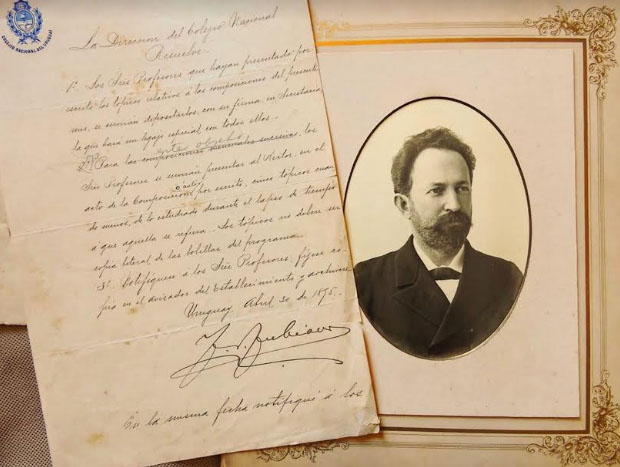 COLEGIO NACIONAL DEL URUGUAY
La Direccion del Colegio Nacional
Resuelve:
1º Los Sres Profesores que hayan presentado por
escrito los tópicos relativos á las composiciones del presente
mes, se servirán depositarlos, con su firma, en Secretaría
la que hará un legajo especial con todos ellos.
este objeto
2º) Para las composiciones los
Sres Profesores se servirán presentar al Rector, en el
acto de la Composición, por escrito, cinco tópicos cuan
do menos, de lo estudiado durante el lapso de tiempo
á que aquella se refiera. Los tópicos no deben ser
copia literal de las bolillas del programa.
3º Notifiquese á los Sres Profesores, fijese co-
pia en el avisador del Establecimiento y archivese
Uruguay, Abril 30 de 1895.
En la misma fecha notifiqué á los